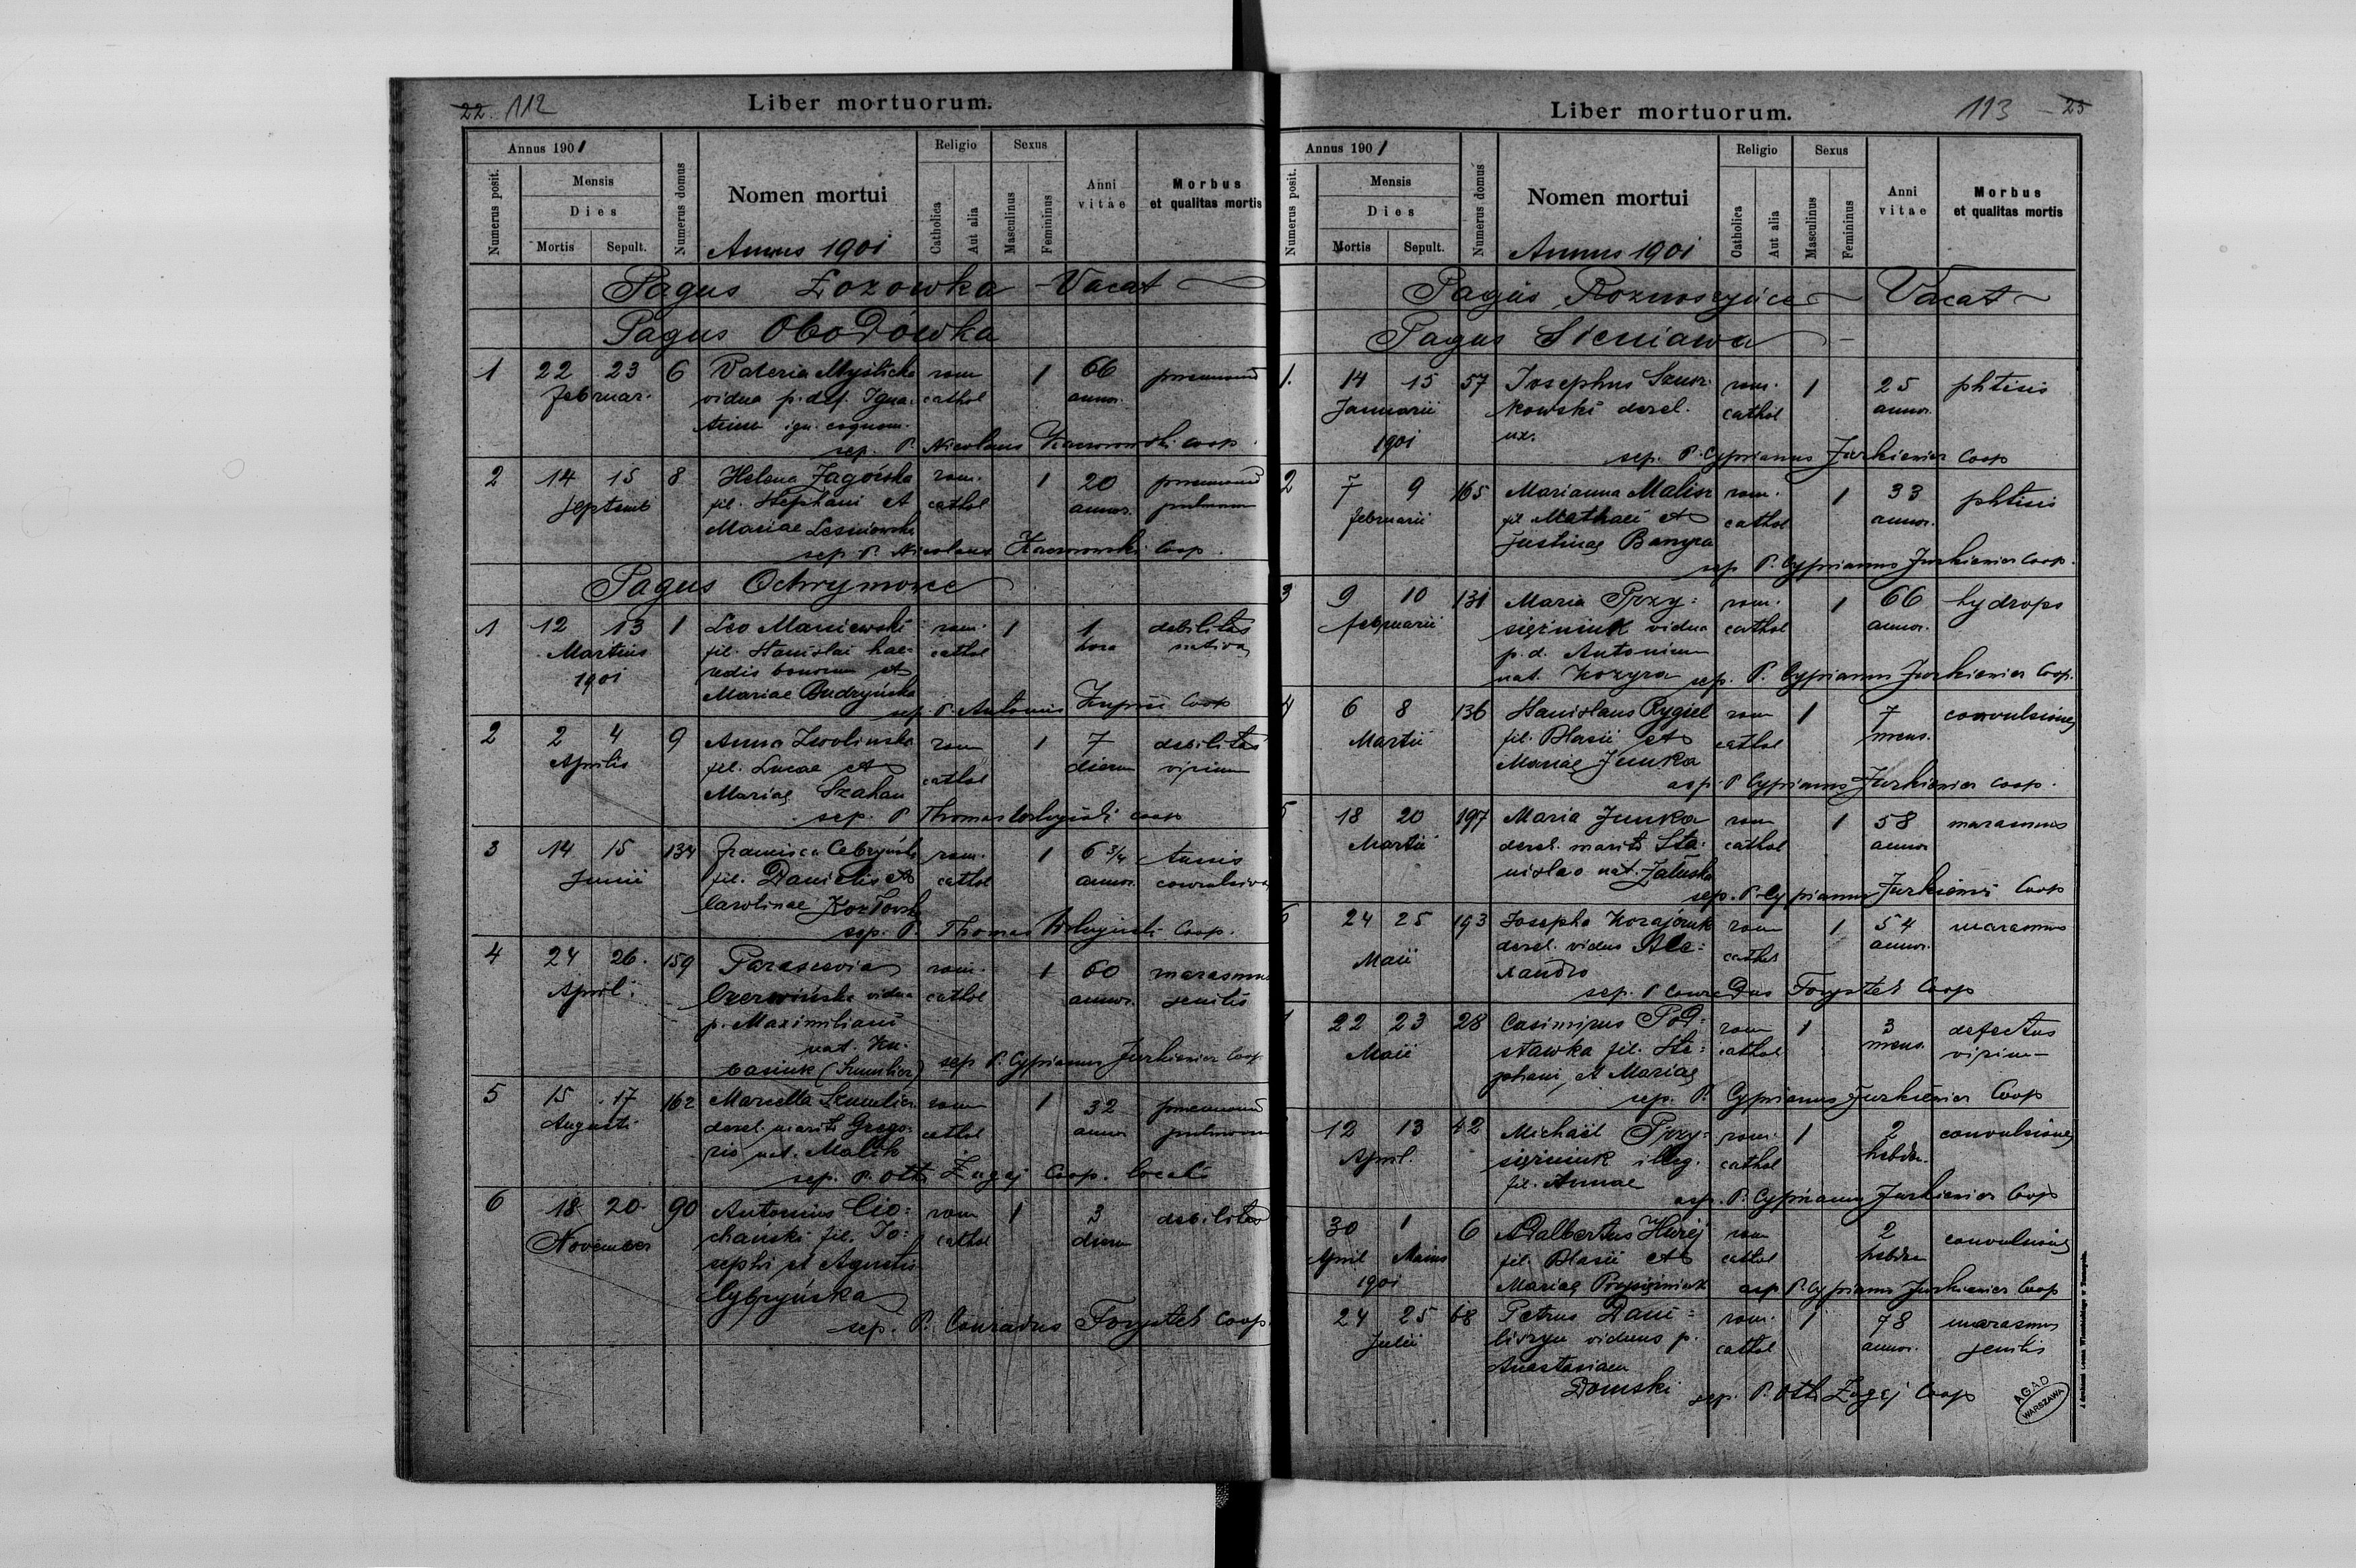 22. 112
Liber mortuorum.
Annus 1901
Numerus posit.
Mensis
Dies
Mortis
Sepult.
Numerus domus
Nomen mortui
Annus 1901
Religio
Catholica
Aut alia
Sexus
Masculinus
Femininus
Anni vitae
Morbus et qualitas mortis
Pagus Łozowka - Vacat
Pagus Obodówka
1 22 23 6 Valeria Myślicka rom 1 66
Februar. vidua p. def. Igna- cathol annor.
tium ign. cognom.
sep. P. Nicolaus coop.
2 14 15 8 Helena Zagórska rom. 1 20
Septemb fil. Stephani et cathol annor. pulmonum
Mariae Lesniowska
sep. P. Nicolaus Coop.
Pagus Ochrymowce
1 12 13 1 Leo rom. 1 1 debilitas
Martius fil. Stanislai hae- cathol hora nativa
1901 redis bonorum et
Mariae Budzyńska
sep. P. Antonius Coop
2 2 4 9 Anna rom 1 7 debilitas
Aprilis fil. Lucae et cathol dierum virium
Mariae Szahan
sep. P. Thomas coop
3 14 15 134 Francisca rom. 1 6 3/4 tussis
Junii fil. Danielis et cathol annor. convulsiva
Carolinae Kozłowska
sep. P. Thomas Coop.
4 24 26. 159 Parascevia rom. 1 60 marasmus
April. Czerwińska vidua cathol annor. senilis
p. Maximiliani
nat. Ku-
basiuk
sep P. Cyprianus Jurkiewicz Coop
5 15 17 162 Marcella rom 1 32
Augusti derel. mariti Grego- cathol annor pulmonum
rio nat. Malik
sep. P. Otto Zagaj Coop. locali
6 18 20 90 Antonius Cio- rom 1 3 debilitas
November chański fil. Jo- cathol dierum
sephi et
Cybryńska
sep. P. Conradus Forystek Coop.
Liber mortuorum.
113 25
Annus 1901
Numerus posit.
Mensis
Dies
Mortis
Sepult.
Numerus domus
Nomen mortui
Annus 1901
Religio
Catholica
Aut alia
Sexus
Masculinus
Femininus
Anni vitae
Morbus et qualitas mortis
Pagus Roznoszyńce Vacat
Pagus Sieniawa
1. 14 15 57 Josephus rom. 1 25 phtisis
Januarii kowski derel. cathol annor.
1901 ux.
sep. P. Cyprianus Jurkiewicz Coop
2 7 9 165 Marianna Malisz rom. 1 33 phtisis
februarii fil Mathaei et cathol annor.
Justinae Banyra
sep P. Cyprianus Jurkiewicz Coop.
3 9 10 131 Maria Przy- rom. 1 66 hydrops
februarii siężniuk vidua cathol annor.
p. d. Antonium
nat. Kozyra sep. P. Cyprianus Jurkiewicz Coop.
4 6 8 136 Stanislaus Rygiel rom 1 7 convulsiones
Martii fil. Blasii et cathol mens.
Mariae Junka
asp. P Cyprianus Jurkiewicz coop.
5 18 20 197 Maria Junka rom 1 58 marasmus
Martii derel. mariti Sta- cathol annor
nislao nat. Załuska
sep. P. Cyprianus Jurkiewicz Coop
6 24 25 193 Josepha rom 1 54 marasmus
Maii derel. viduo Ale- cathol annor.
xandro
sep. P Conradus Forystek Coop
22 23 28 Casimirus Pod- rom 1 3 defectus
Maii stawka fil. Ste- cathol mens. virium
phani et Mariae
sep. P. Cyprianus Jurkiewicz Coop
12 13 42 Michaël Przy- rom. 1 2 convulsiones
April. siężniuk illeg. cathol hebdm.
fil. Annae
asp. P. Cyprianus Jurkiewicz Coop
30 1 6 Adalbertus Huzéj rom 2 convulsiones
April Maius fil. Blasii et cathol hebdm
1901 Mariae Przysiężniuk asp P. Cyprianus Jurkiewicz Coop
24 25 68 Petrus Dani- rom. 1 78 marasmus
Julii viduus p. cathol annor. senilis
Anastasiam
Domski sep. P. Otto Zagaj Coop
A.G.A.D.
WARSZAWA